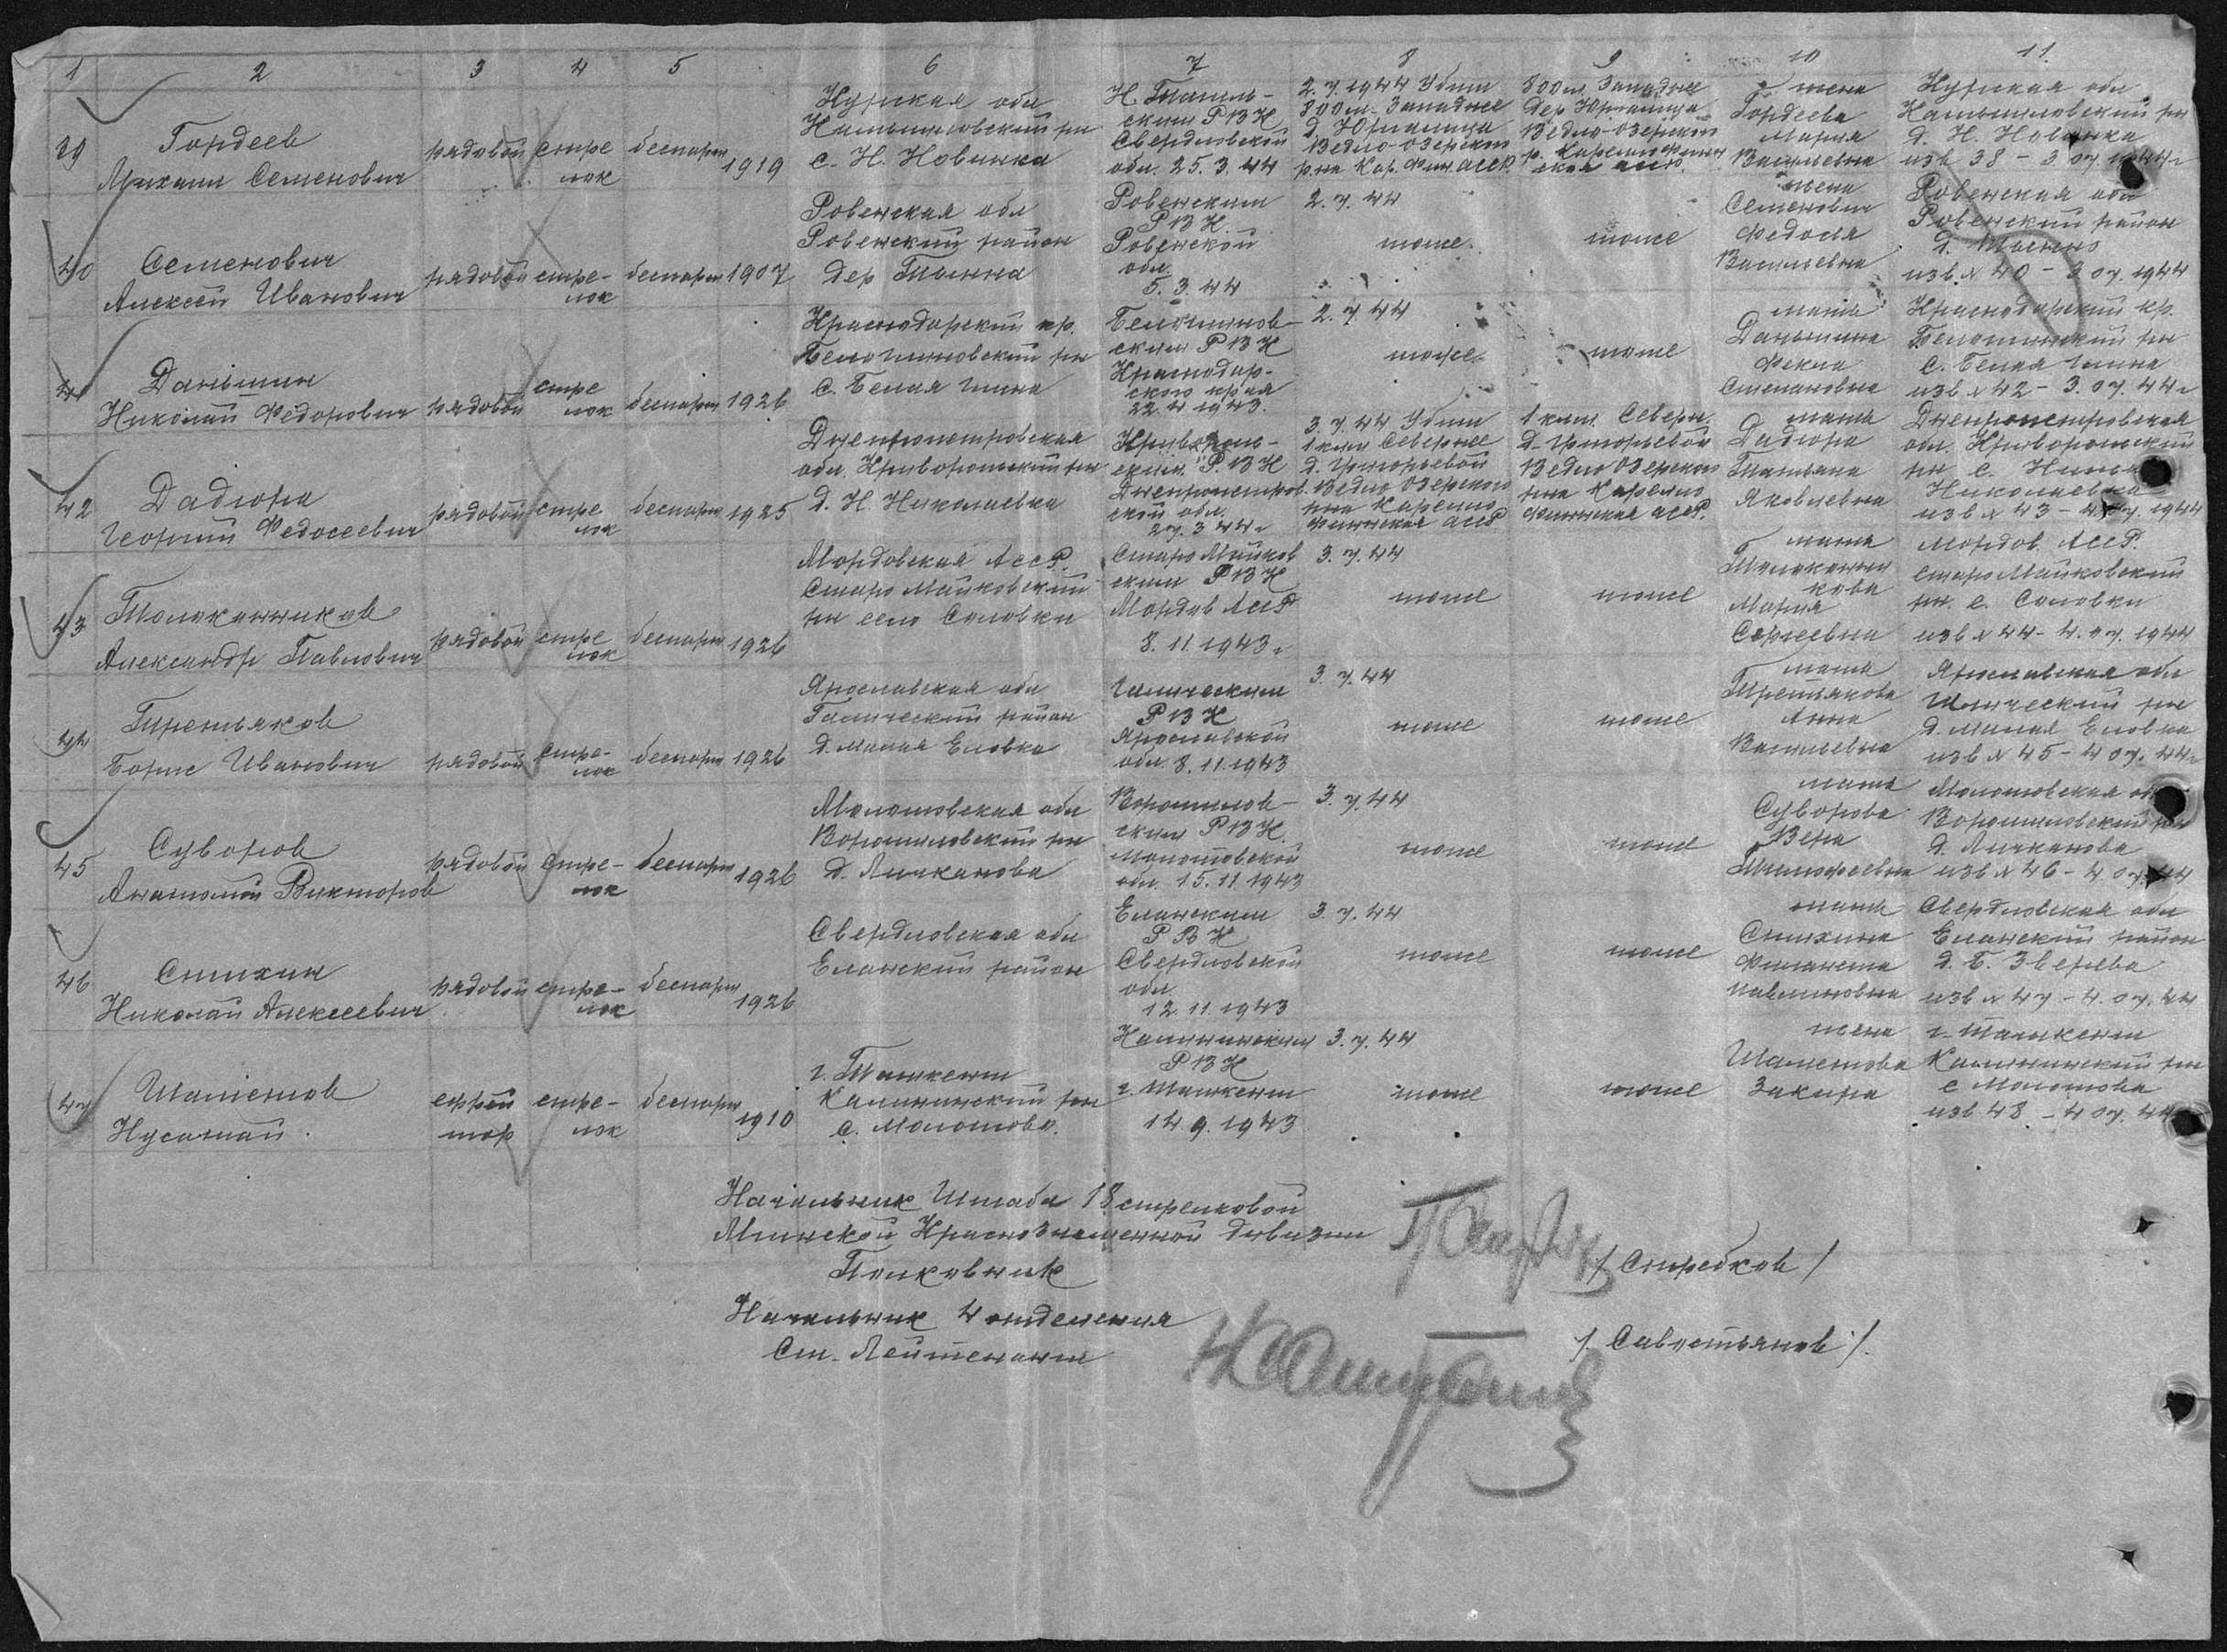 1 2 3 4 5 6 7 8 9 10 11
39
Гордеев
Михаил Семенович
рядовой
стре
лок
беспарт
1919
Курская обл
с. Н. Новинка
Н. Тагиль-
ским РВК
Свердловской
обл. 25.3.44
2.7.1944 Убит
800 м. Западнее
Ведло-Озерского
р-на Кар. Фин. АССР
800 м. Западнее
Ведло-Озерского
жена
Гордеева
Мария
Васильевна
Курская обл
д. Н. Новинка
изв 38 - 3.07.1944г
40
Семенович
Алексей Иванович
рядовой
стре-
лок
беспарт
1907
Ровенская обл
Ровенский район
дер Тынна
Ровенским
РВК
Ровенской
обл.
5.3.44
2.7.44
тоже
тоже
жена
Семенович
Федосия
Васильевна
Ровенская обл
Ровенский район
изв № 40 - 3.07.1944
41
Даньшин
Николай Федорович
рядовой
стре
лок
беспарт
1926
Краснодарский кр.
Белоглиновский рн
с. Белая Глина
Белоглинов-
ским РВК
Краснодар-
ского края
22.4.1943.
2.7.44
тоже
тоже
мать
Даньшина
Фекла
Степановна
Краснодарский кр.
с. Белая Глина
изв № 42 - 3.07.44г
42
Дадюра
Георгий Федосеевич
рядовой
стре
лок
беспарт
1925
Днепропетровская
обл. Криворожский рн
д. Н. Николаевка
Криворож-
ским РВК
Днепропетров
ской обл.
27.3.44г
3.7.44 Убит
1 клм Севернее
д. Григорьевой
Ведло Озерского
рна Карело
Финская АССР
1 клм. Северн.
д. Григорьевой
Ведло Озерского
рна Карело
Финская АССР.
мать
Дадюра
Татьяна
Яковлевна
Днепропетровская
обл. Криворожский
рн с.
Николаевка
изв № 43 - 4.07.1944
43
Толоконников
Александр Павлович
рядовой
стре
лок
беспарт
1926
Мордовская АССР.
Старо Майковский
рн село Соловки
Старо Майков
ским РВК
Мордов АССР
8.11.1943г
3.7.44
тоже
тоже
мать
Толоконни
кова
Мария
Сергеевна
мордов. АССР.
Старо Майковский
рн. с. Соловки
изв № 44 - 4.07.1944
44
Третьяков
Борис Иванович
рядовой
стре-
лок
беспарт
1926
Ярославская обл
Галический район
д. малая Еловка
Галическим
РВК
Ярославской
обл. 8.11.1943
3.7.44
тоже
тоже
мать
Третьякова
Анна
Васильевна
Ярославская обл
д. Малая Еловка
изв № 45 - 4.07.44г
45
Суворов
Анатолий Викторов
рядовой
стре-
лок
беспарт
1926
Молотовская обл
Ворошиловский рн
д. Личканова
Ворошилов-
ским РВК
Молотовской
обл. 15.11.1943
3.7.44
тоже
тоже
мать
Суворова
Вера
Тимофеевна
Молотовская обл
Ворошиловский рн
д. Личканова
изв № 46 - 4.07.44
46
Снихин
Николай Алексеевич
рядовой
стре-
лок
беспарт
1926
Свердловская обл
Еланский район
Еланским
РВК
Свердловской
обл
12.11.1943
3.7.44
тоже
тоже
мать
Снихина
Павлиновна
Свердловская обл
Еланский район
д. Б. Зверева
изв № 47 - 4.07.44
47
Шаметов
Нусанай
ефрей
тор
стре-
лок
беспарт
1910
г. Ташкент
Калининский рн
с. Молотово.
Калининским
РВК
г. Ташкент
14.9.1943
3.7.44
тоже
тоже
жена
Шаметова
Закира
г. Ташкент
Калининский рн
с Молотова
изв 48 - 4.07.44
Начальник Штаба 18 стрелковой
Мгинской Краснознаменной дивизии
Полковник
/ Скиребков /
Начальник 4 отделения
Ст. Лейтенант
/ Савостьянов /